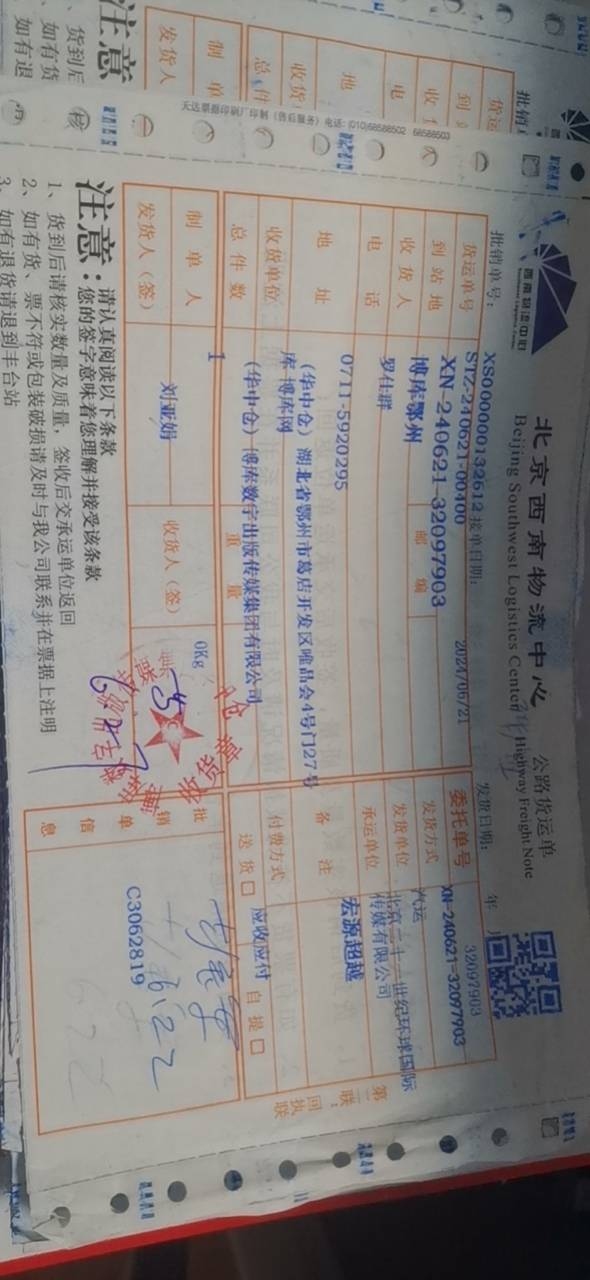 天达票据印刷厂印制 (售后服务) 电话: (010)68588502 68588503
西南物流中心
北京西南物流中心
Beijing Southwest Logistics Center
公路货运单
Highway Freight Note
批销单号: XS0000000132612 接单日期: 2024/06/21 发货日期: 年 月
货运单号 STZ-240621-00400
XN-240621-32097903
委托单号 32097903
XN-240621-32097903
到站地 博库鄂州 邮编
发货方式 汽运
收货人 罗仕群
发货单位 北京二十一世纪环球国际传媒有限公司
电话 0711-5920295
承运单位 宏源超越
地址 (华中仓) 湖北省鄂州市葛店开发区唯品会4号门27号库 博库网
备注
收货单位 (华中仓) 博库数字出版传媒集团有限公司
付费方式 应收应付
总件数 1 重量 0Kg
送货□ 自提□
制单人 刘亚娟
发货人(签) 收货人(签)
批销单信息 C3062819
第二联:回执联
注意:
请认真阅读以下条款
您的签字意味着您理解并接受该条款
1、货到后请核实数量及质量, 签收后交承运单位返回
2、如有货、票不符或包装破损请及时与我公司联系并在票据上注明
3、如有退货请退到丰台站
注意
货到后
如有货
如有退
发货人
制单
总件
收货
地
电
收
到
货运
批销
核